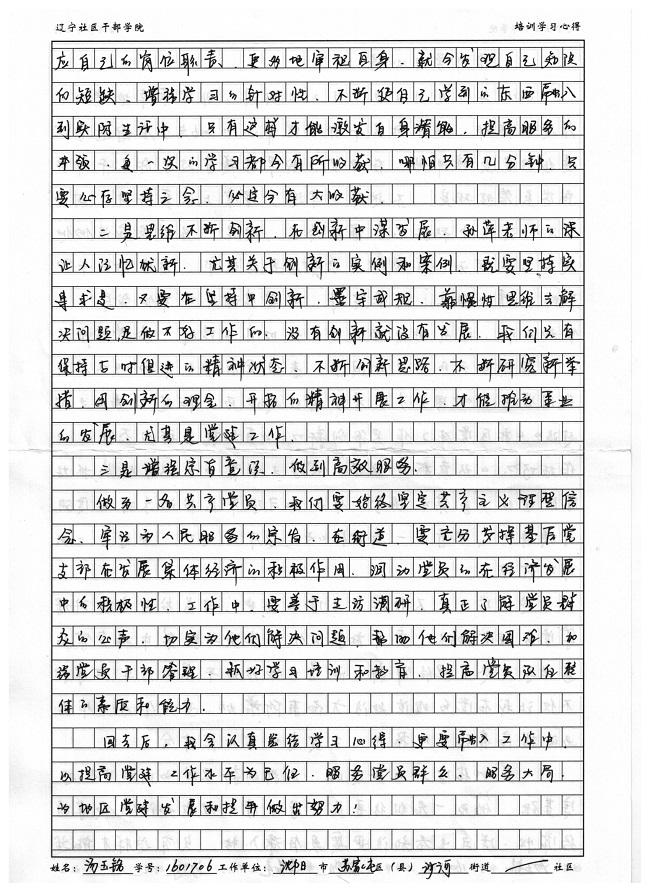 辽宁社区干部学院 培训学习心得
应自己的岗位职责、更好地审视自身、就会发现自己知识
的短缺、增强学习的针对性、不断把自己学到的东西融入
到实际生活中、只有这样才能激发自身潜能、提高服务的
本领、每一次的学习都会有所收获、哪怕只有几分钟、只
要心存坚持之念、必定会有大收获。
二是思维不断创新、在创新中谋发展、孙萍老师的课
让人记忆犹新、尤其关于创新的实例和案例、既要坚持实
事求是、又要在坚持中创新、墨守成规、靠惯性思维去解
决问题是做不好工作的、没有创新就没有发展、我们只有
保持与时俱进的精神状态、不断创新思路、不断研究新举
措、用创新的理念、开拓的精神开展工作、才能推动事业
的发展、尤其是党建工作。
三是增强宗旨意识、做到高效服务。
做为一名共产党员、我们要始终坚定共产主义理想信
念、牢记为人民服务的宗旨、在街道、要充分发挥基层党
支部在发展集体经济的积极作用、调动党员的在经济发展
中的积极性、工作中、要善于走访调研、真正了解党员群
众的心声、切实为他们解决问题、帮助他们解决困难、加
强党员干部管理、抓好学习培训和教育、提高党员队伍整
体的素质和能力。
回去后、我会认真总结学习心得、更要融入工作中、
以提高党建工作水平为己任、服务党员群众、服务大局、
为地区党建发展和提升做出努力!
姓名: 汤玉铭 学号: 1601706 工作单位: 沈阳 市 苏家屯 区(县) 沙河 街道 社区